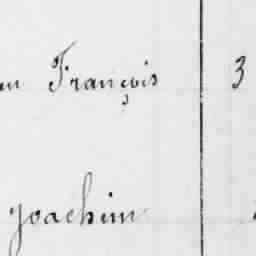 François 3
Joachim